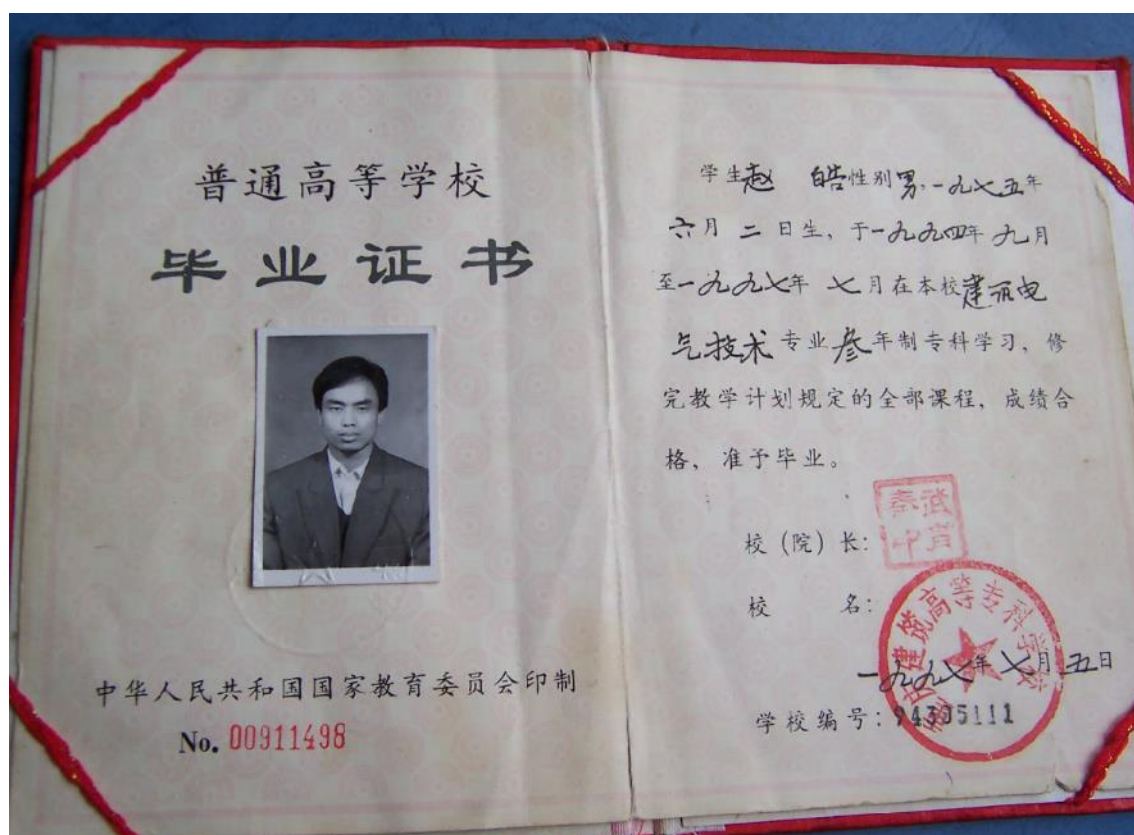 普通高等学校
毕业证书
中华人民共和国国家教育委员会印制
No. 00911498
学生赵 皓性别男,一九七五年
六月二日生,于一九九四年九月
至一九九七年 七月在本校建筑电
气技术专业叁年制专科学习,修
完教学计划规定的全部课程,成绩合
格,准予毕业。
校(院)长:
校 名:
建筑高等专科学校
一九九七年七月五日
学校编号:94305111